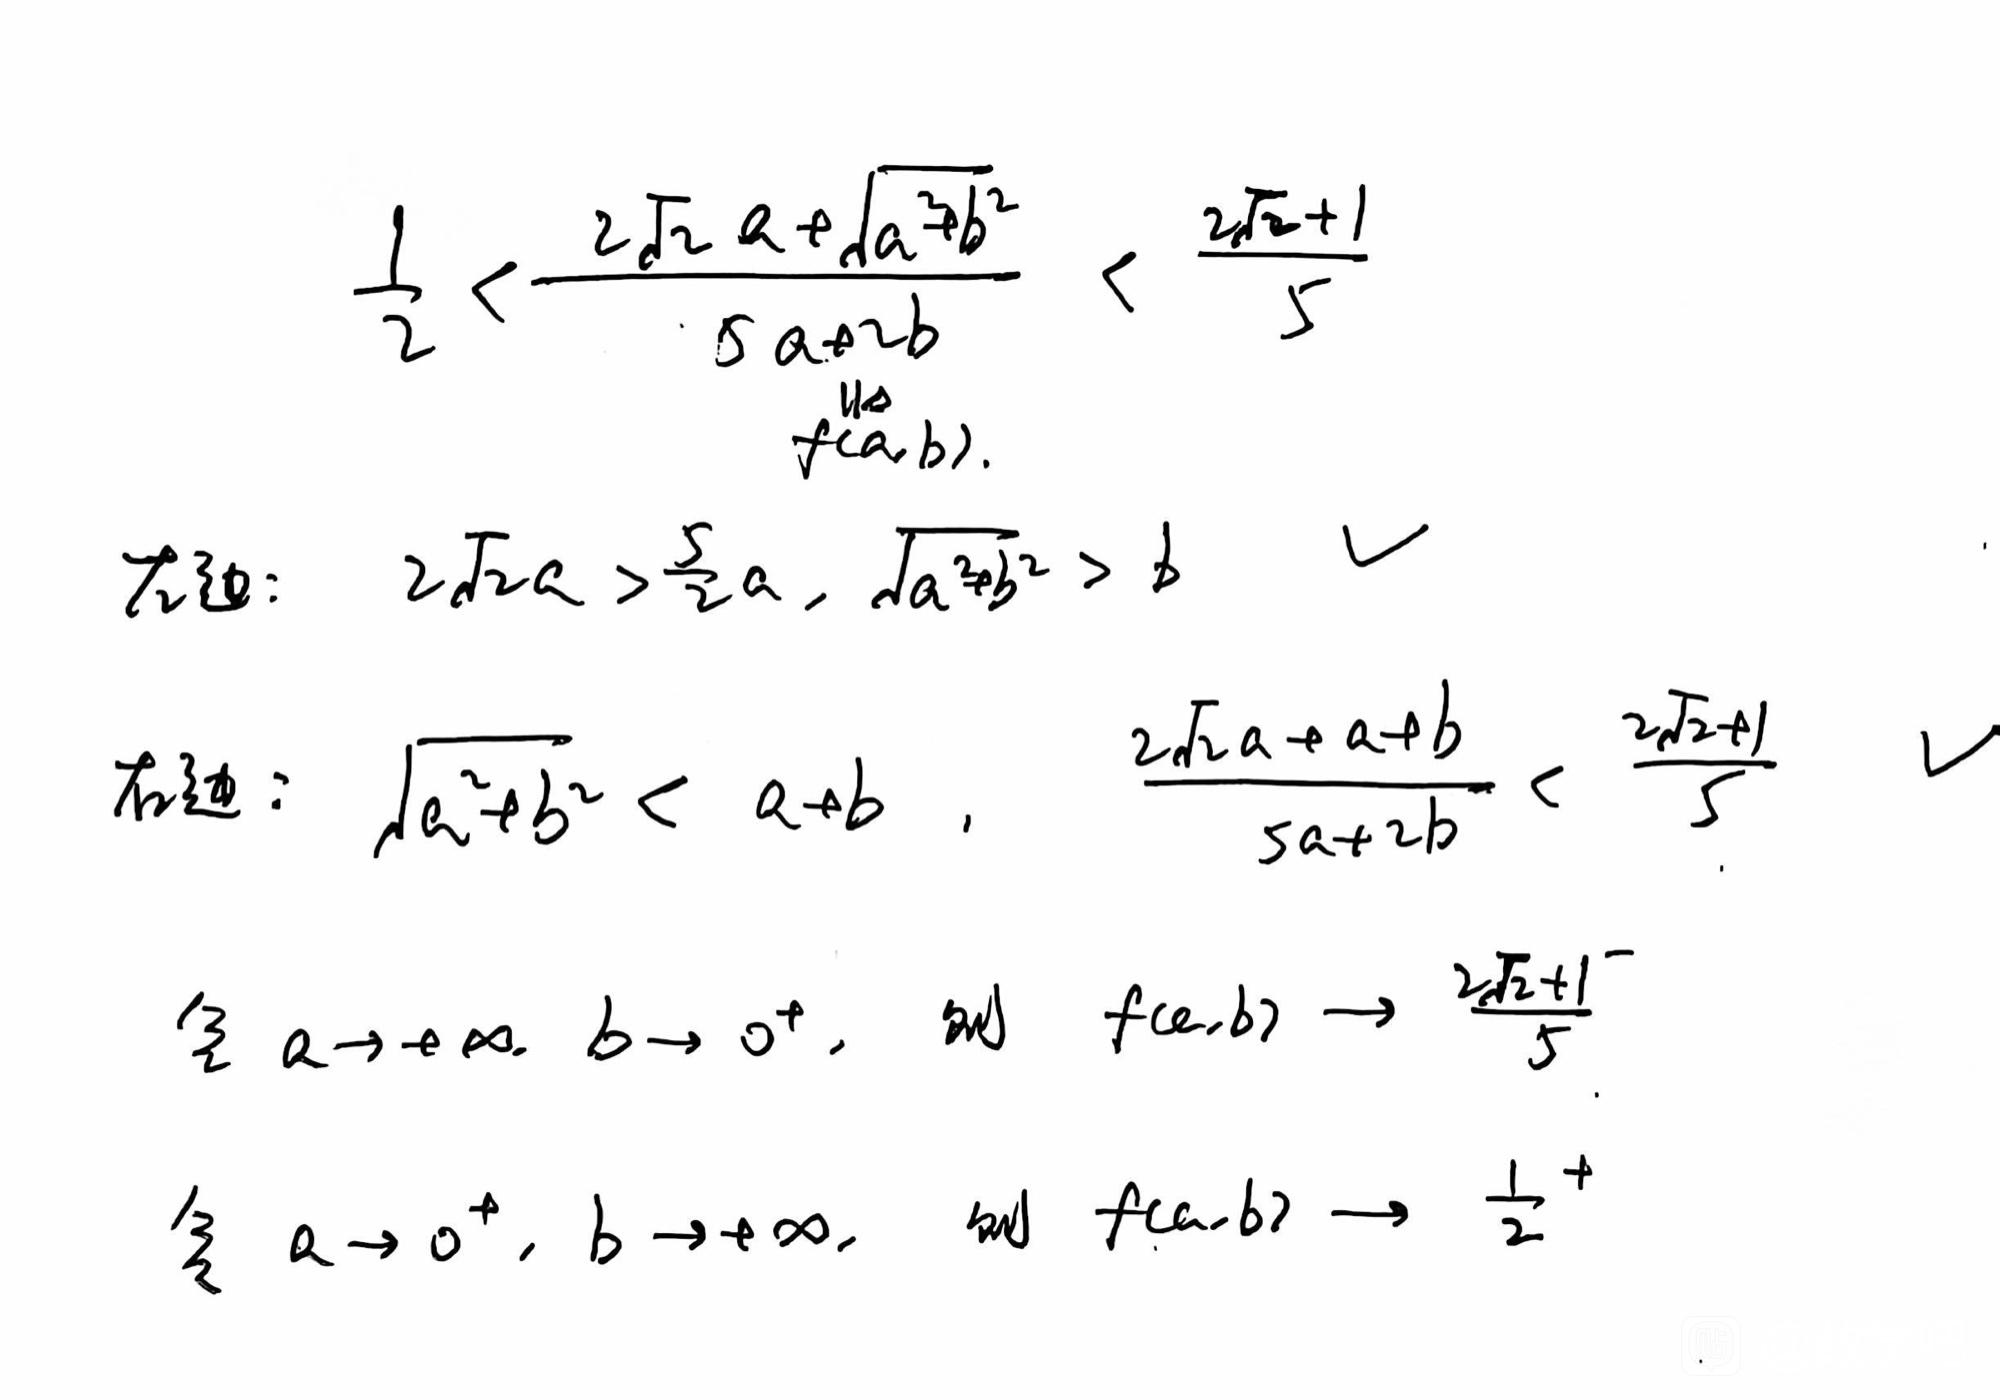 1/2 < (2√2 a + √(a²+b²)) / (5a+2b) < (2√2+1)/5
≜
f(a,b).
左边: 2√2a > 5/2 a, √(a²+b²) > b ✓
右边: √(a²+b²) < a+b, (2√2a+a+b)/(5a+2b) < (2√2+1)/5 ✓
令 a→+∞, b→0⁺, 则 f(a,b) → (2√2+1)/5 ⁻
令 a→0⁺, b→+∞, 则 f(a,b) → 1/2 ⁺